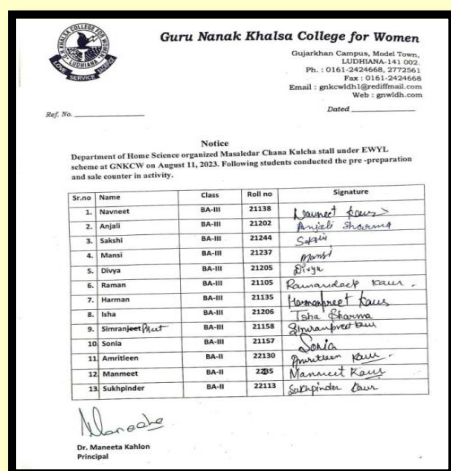 GURU NANAK KHALSA COLLEGE FOR WOMEN
LUDHIANA
LOVE SERVICE
Guru Nanak Khalsa College for Women
Gujarkhan Campus, Model Town,
LUDHIANA-141 002.
Ph. : 0161-2424668, 2772561
Fax : 0161-2424668
Email : gnkcwldh1@rediffmail.com
Web : gnwldh.com
Ref. No.
Dated
Notice
Department of Home Science organized Masaledar Chana Kulcha stall under EWYL
scheme at GNKCW on August 11, 2023. Following students conducted the pre -preparation
and sale counter in activity.
Sr.no Name Class Roll no Signature
1. Navneet BA-III 21138 Navneet Kaur
2. Anjali BA-III 21202 Anjali Sharma
3. Sakshi BA-III 21244 Sakshi
4. Mansi BA-III 21237 Mansi
5. Divya BA-III 21205 Divya
6. Raman BA-III 21105 Ramandeep Kaur.
7. Harman BA-III 21135 Harmanpreet Kaur
8. Isha BA-III 21206 Isha Sharma
9. Simranjeet Preet BA-III 21158 Simranpreet kaur
10. Sonia BA-III 21157 Sonia
11. Amritleen BA-II 22130 Amritleen Kaur.
12. Manmeet BA-II Manmeet Kaur
13. Sukhpinder BA-II 22113 Sukhpinder Kaur
Maneeta
Dr. Maneeta Kahlon
Principal